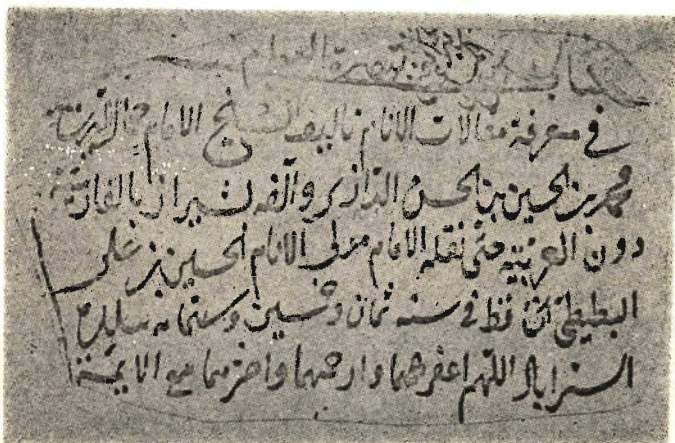 كتاب تبصرة العوام
في معرفة مقالات الانام تاليف الشيخ الامام جمال الدين
محمد بن الحسين بن الحسن الرازي والفه بشيراز بالفارسية
دون العربية حتى نقله الامام مولى الانام الحسين بن علي
البطيطي الحافظ في سنه ثمان وخمسين وستمائه ببلدة
استراباد اللهم اغفرهما وارحمهما واحشرهما مع الائمة